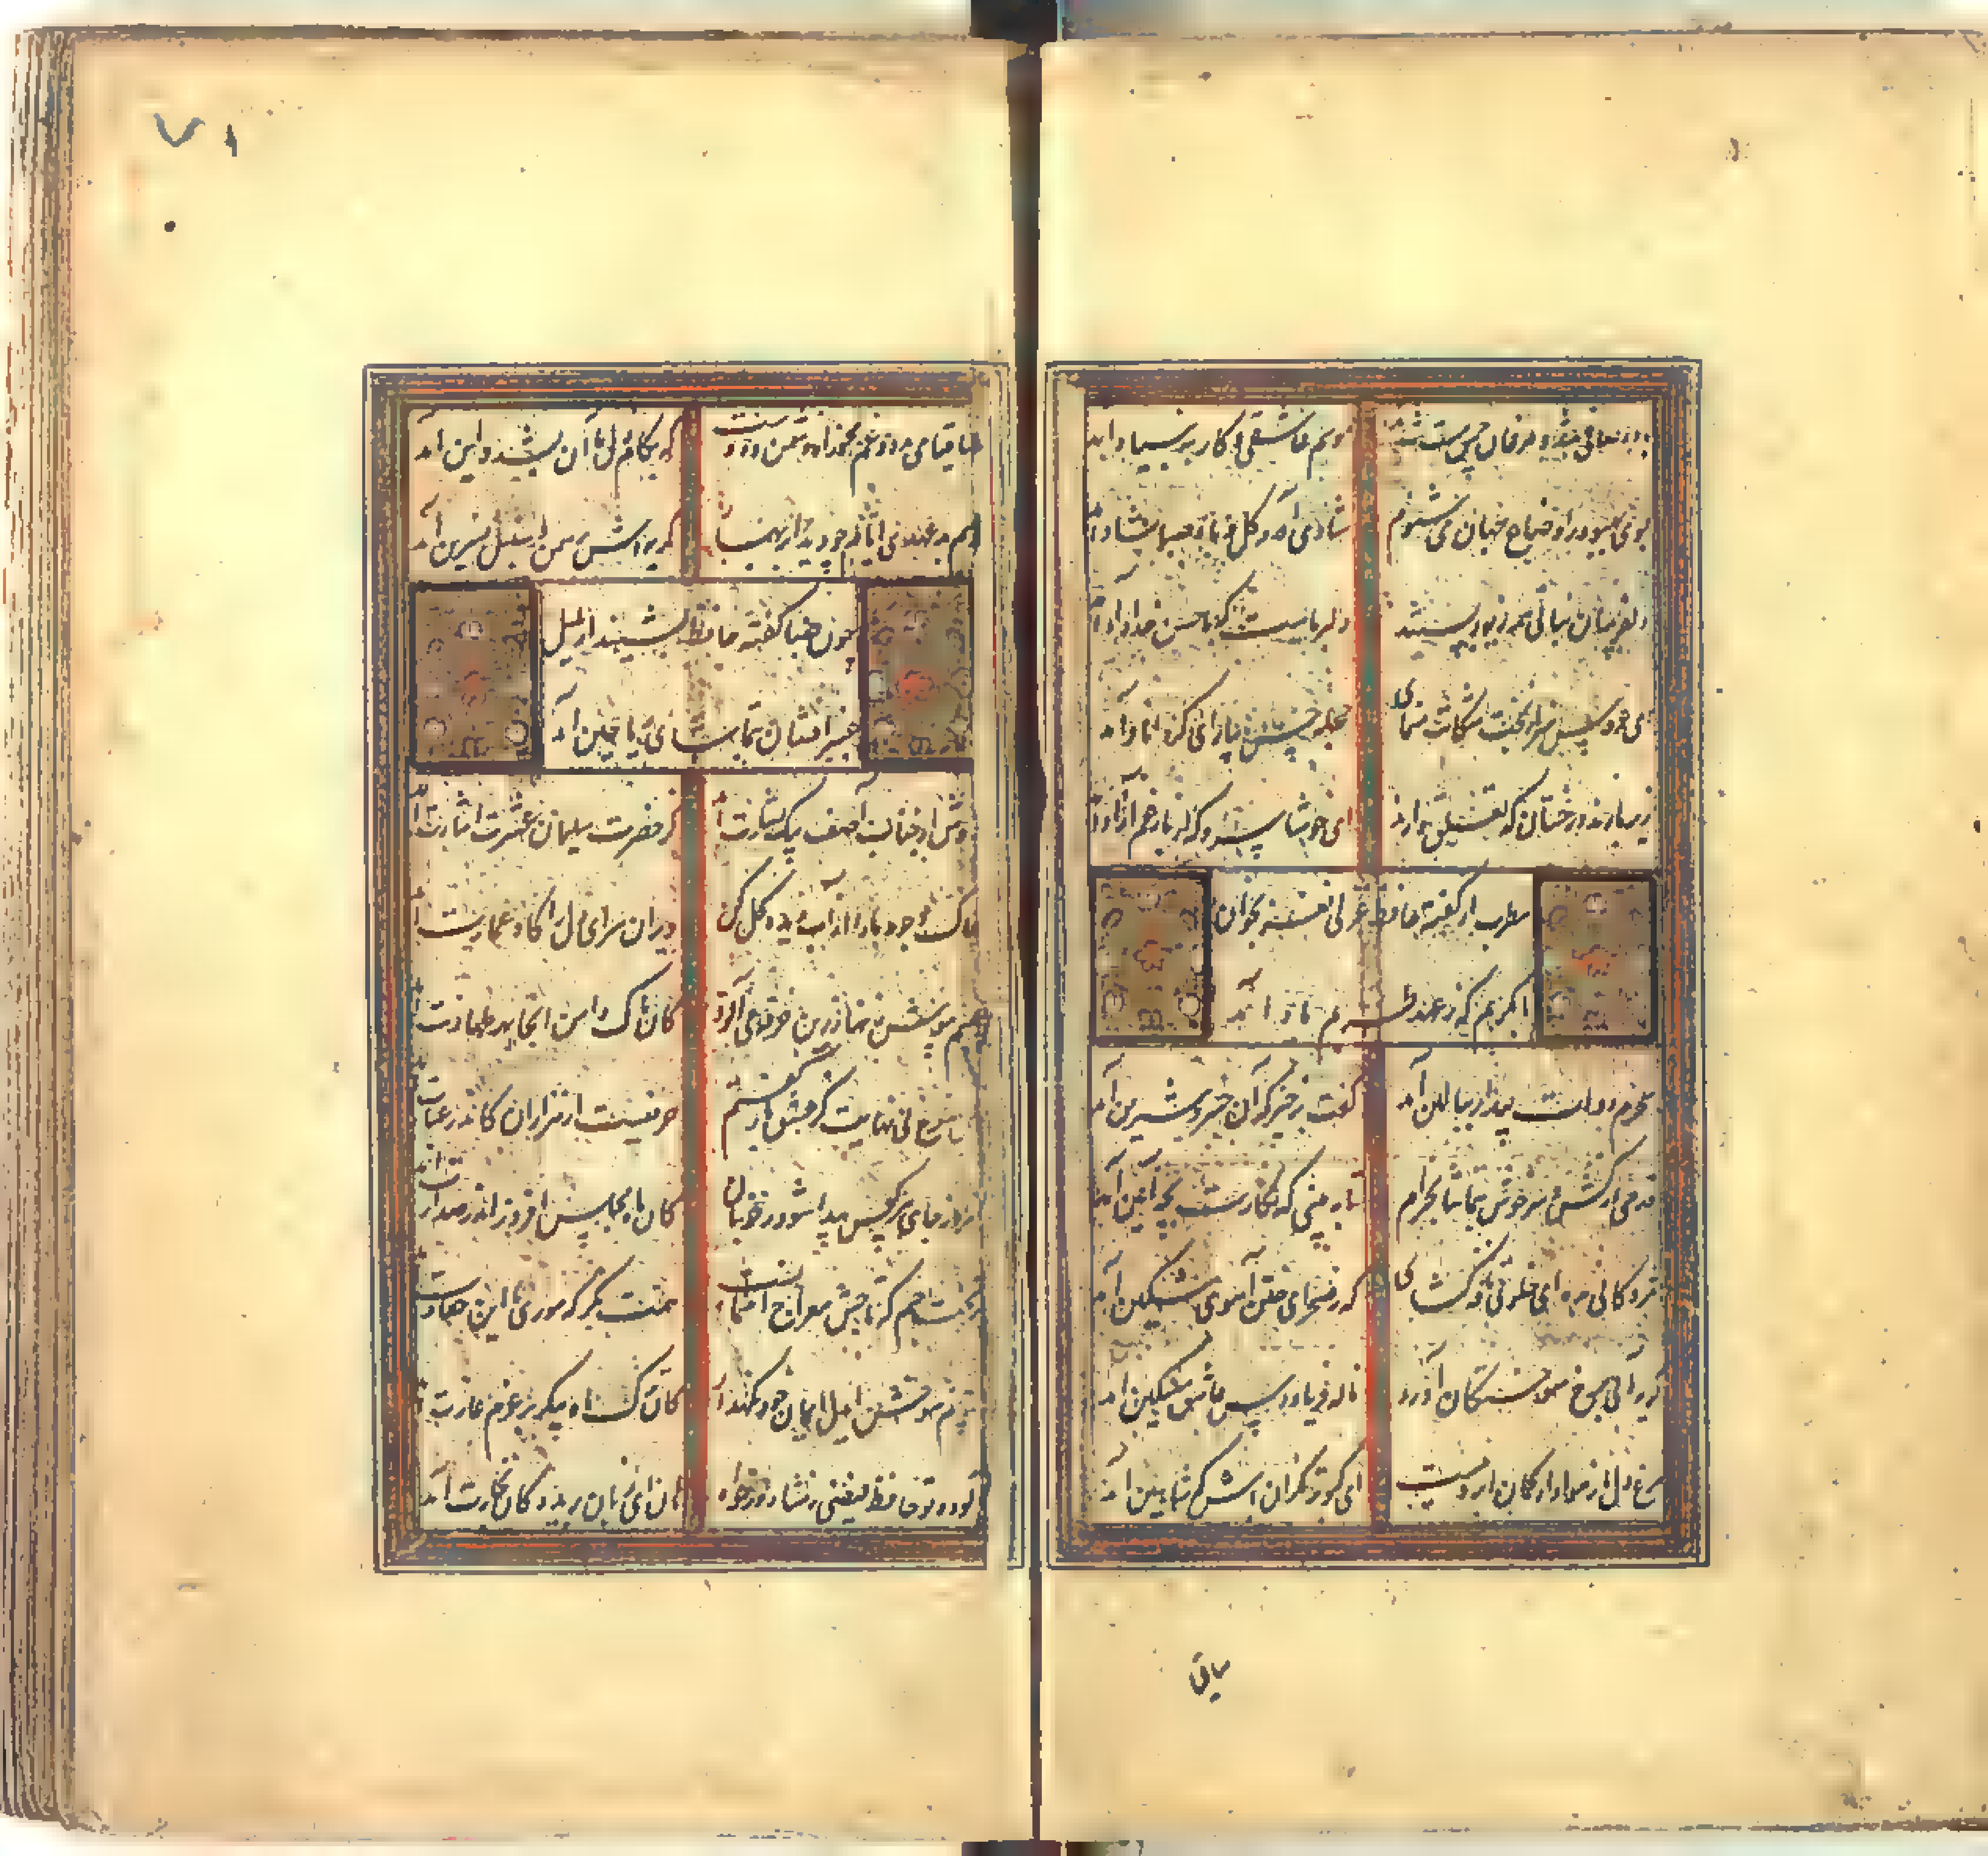 باده صافی شد و مرغان چمن مست شدند
موسم عاشقی و کار به بنیاد آمد
بوی بهبود ز اوضاع جهان می شنوم
شادی آورد گل و باد صبا شاد آمد
دلفریبان نباتی همه زیور بستند
دلبر ماست که با حسن خداداد آمد
ای عروس هنر از بخت شکایت منمای
حجله حسن بیارای که داماد آمد
زیر بارند درختان که تعلق دارند
ای خوشا سرو که از بار غم آزاد آمد
مطرب از گفته حافظ غزلی نغز بخوان
تا بگریم که ز عهد طربم یاد آمد
سحرم دولت بیدار ببالین آمد
گفت برخیز که آن خسرو شیرین آمد
قدحی درکش و سرخوش بتماشا بخرام
تا ببینی که نگارت بچه آیین آمد
مژدگانی بده ای خلوتی نافه گشای
که ز صحرای ختن آهوی مشکین آمد
گریه آبی برخ سوختگان آورد
ناله فریادرس عاشق مسکین آمد
مرغ دل از هوادار کمان ابروییست
ای کبوتر نگران باش که شاهین آمد
ساقی
۷۱
ساقیا می بده و غم مخور از دشمن و دوست
که بکام دل ما آن بشد و این آمد
رسم بدعهدی ایام چو دید ابر بهار
گریه اش بر سمن و سنبل و نسرین آمد
چون صبا گفته حافظ بشنید از بلبل
عنبر افشان بتماشای ریاحین آمد
دوش از جناب آصف پیک بشارت آمد
کز حضرت سلیمان عشرت اشارت آمد
خاک وجود ما را از آب دیده گل کن
ویران سرای دل را گاه عمارت آمد
عیبم بپوش زنهار ای خرقه می آلود
کان پاک دامن اینجا بهر طهارت آمد
این شرح بی نهایت کز حسن یار گفتم
حرفیست از هزاران کاندر عبارت آمد
امروز جای هر کس پیدا شود ز خوبان
کان ماه مجلس افروز اندر صدارت آمد
بر تخت جم که تاجش معراج آسمانست
همت نگر که موری با این حقارت آمد
از چشم شوخش ای دل ایمان خود نگهدار
کان جادوی کمانکش بر عزم غارت آمد
آلوده تو حافظ فیضی ز شاه درخواه